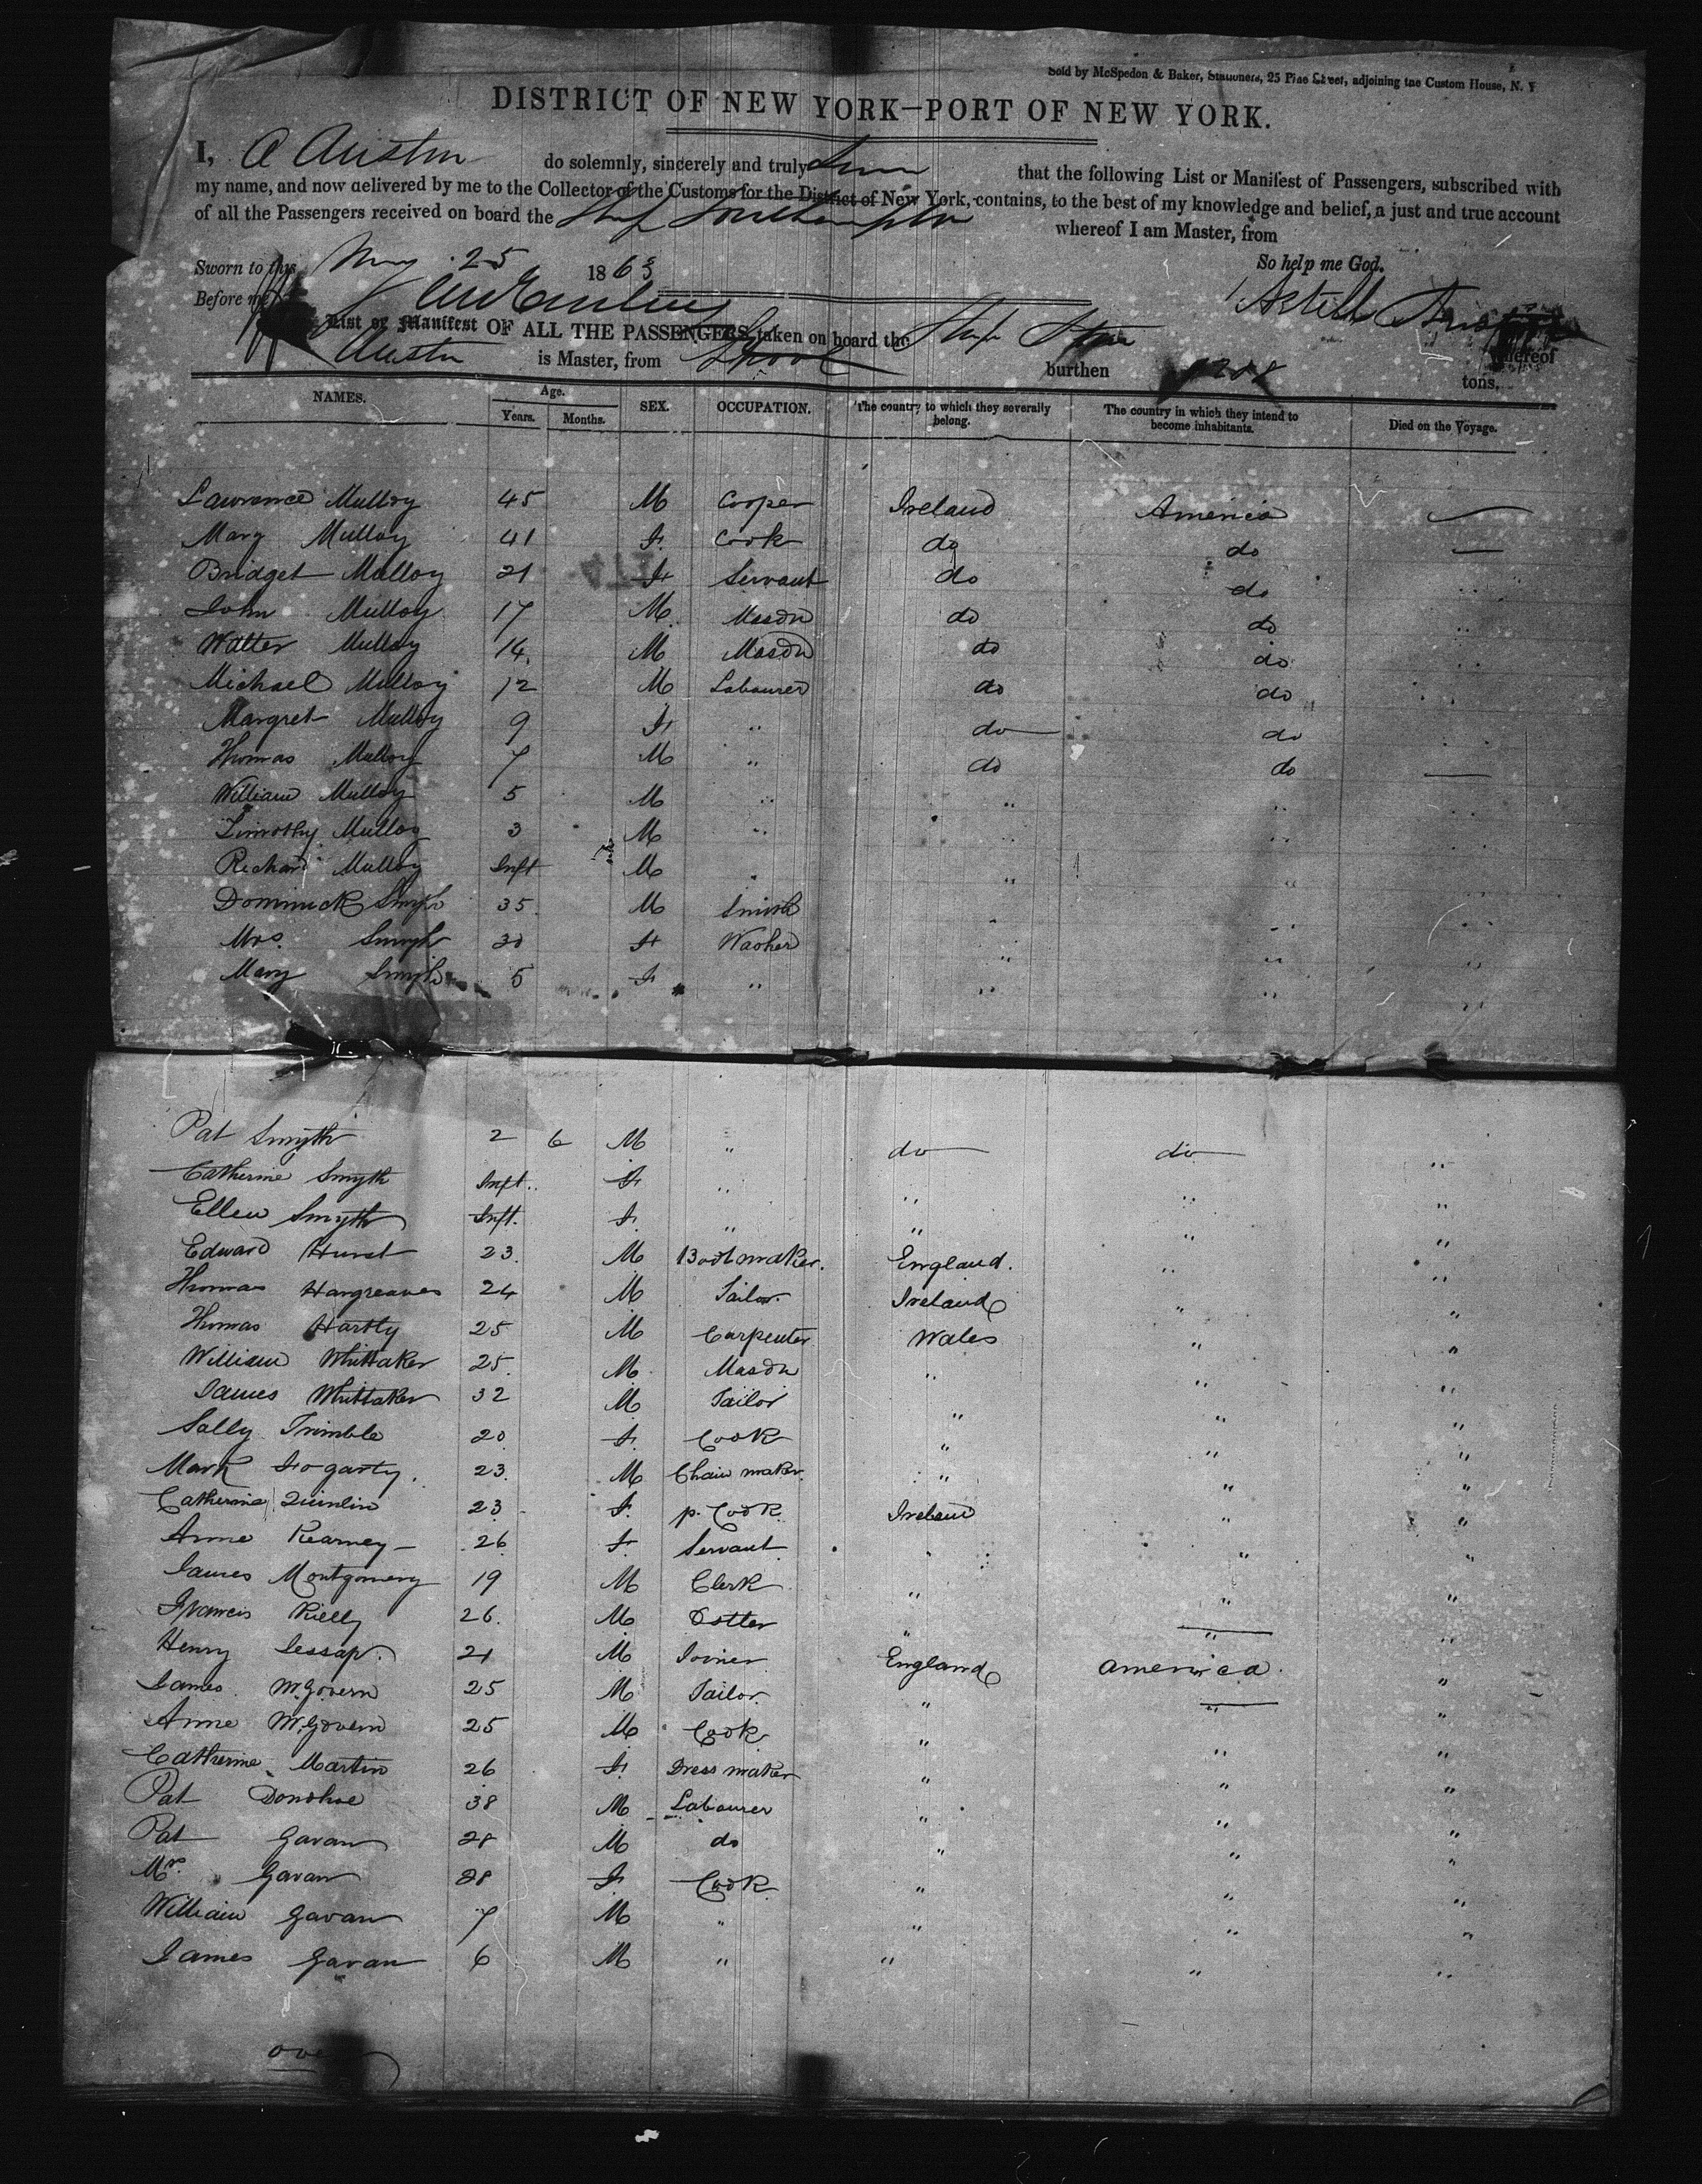 Sold by McSpedon & Baker, Stationers, 25 Pine Street, adjoining the Custom House, N. Y
DISTRICT OF NEW YORK—PORT OF NEW YORK.
I, A Austin do solemnly, sincerely and truly that the following List or Manifest of Passengers, subscribed with
my name, and now delivered by me to the Collector of the Customs for the District of New York, contains, to the best of my knowledge and belief, a just and true account
of all the Passengers received on board the Ship Southampton whereof I am Master, from
Sworn to this May 25 1863 So help me God.
Before me
List or Manifest OF ALL THE PASSENGERS taken on board the Ship whereof
Austin is Master, from Lpool burthen 1208 tons.
NAMES. Age. Years. Months. SEX. OCCUPATION. The country to which they severally belong. The country in which they intend to become inhabitants. Died on the Voyage.
Lawrence Mulloy 45 M Cooper Ireland America —
Mary Mulloy 41 F. Cook do do —
Bridget Mulloy 21 F Servant do do "
John Mulloy 17 M. Mason do do "
Walter Mulloy 14. M Mason do do "
Michael Mulloy 12 M Labourer do do
Margret Mulloy 9 F " do do "
Thomas Mulloy 7 M " do do —
William Mulloy 5 M " " "
Timothy Mulloy 3 M " "
Richard Mulloy Inft M " " "
Dominick Smyth 35. M Smith " "
Mrs. Smyth 30 F Washer " " "
Mary Smyth 5 F " " " "
Pat Smyth 2 6 M " do do "
Catherine Smyth Inft. F " " " "
Ellen Smyth Inft. F. " " " "
Edward Hurst 23. M Bootmaker. England. " "
Thomas Hargreaves 24 M Tailor. Ireland " "
Thomas Hartly 25 M Carpenter Wales " "
William Whittaker 25. M. Mason " " "
James Whittaker 32 M Tailor " " "
Sally Trimble 20. F. Cook " " "
Mark Fogarty. 23. M Chair maker. " " "
Catherine Quinlin 23 F. p. Cook Ireland " "
Anne Kearney — 26 F. Servant " " "
James Montgomery 19 M Clerk " " "
Francis Rielly 26. M " " "
Henry Jessap. 21 M Joiner England America. "
James McGovern 25 M Tailor. " " "
Anne McGovern 25 M Cook " " "
Catherine Martin 26 F Dress maker " " "
Pat Donohoe 38 M Labourer " " "
Pat Gavan 28 M do " " "
Mrs. Gavan 28 F Cook " " "
William Gavan 7 M " " " "
James Gavan 6 M " " " "
over